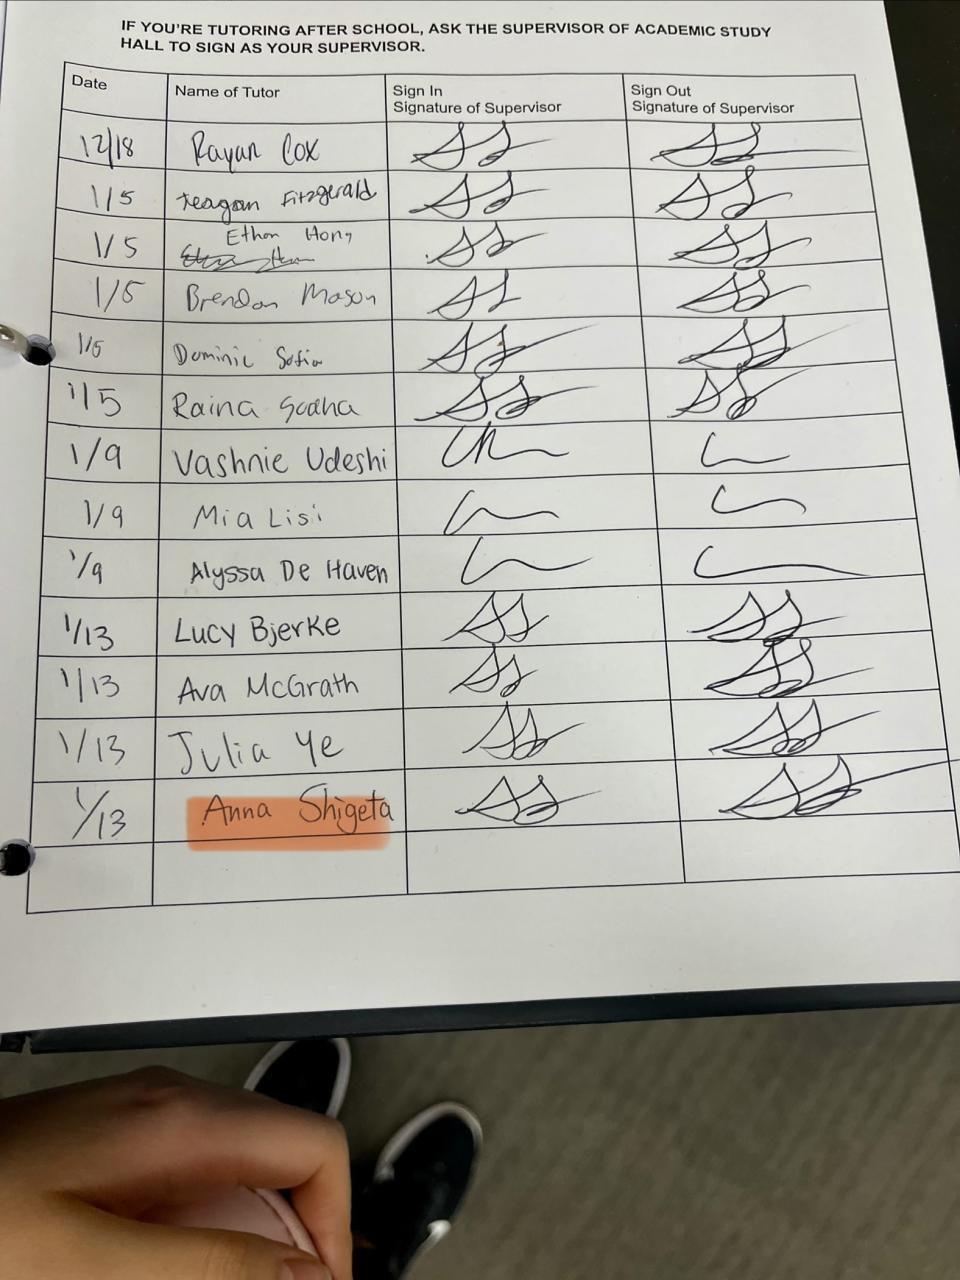 IF YOU'RE TUTORING AFTER SCHOOL, ASK THE SUPERVISOR OF ACADEMIC STUDY
HALL TO SIGN AS YOUR SUPERVISOR.
Date Name of Tutor Sign In Signature of Supervisor Sign Out Signature of Supervisor
12/18 Rayan Cox
1/5 Teagan Fitzgerald
1/5 Ethan Hong
1/5 Brendan Mason
1/5 Dominic
1/5 Raina
1/9 Vashnie Udeshi
1/9 Mia Lisi
1/9 Alyssa De Haven
1/13 Lucy Bjerke
1/13 Ava McGrath
1/13 Julia Ye
1/13 Anna Shigeta